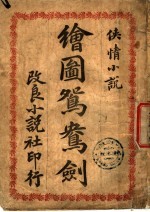 俠情小說
繪圖鴛鴦劍
改良小說社印行